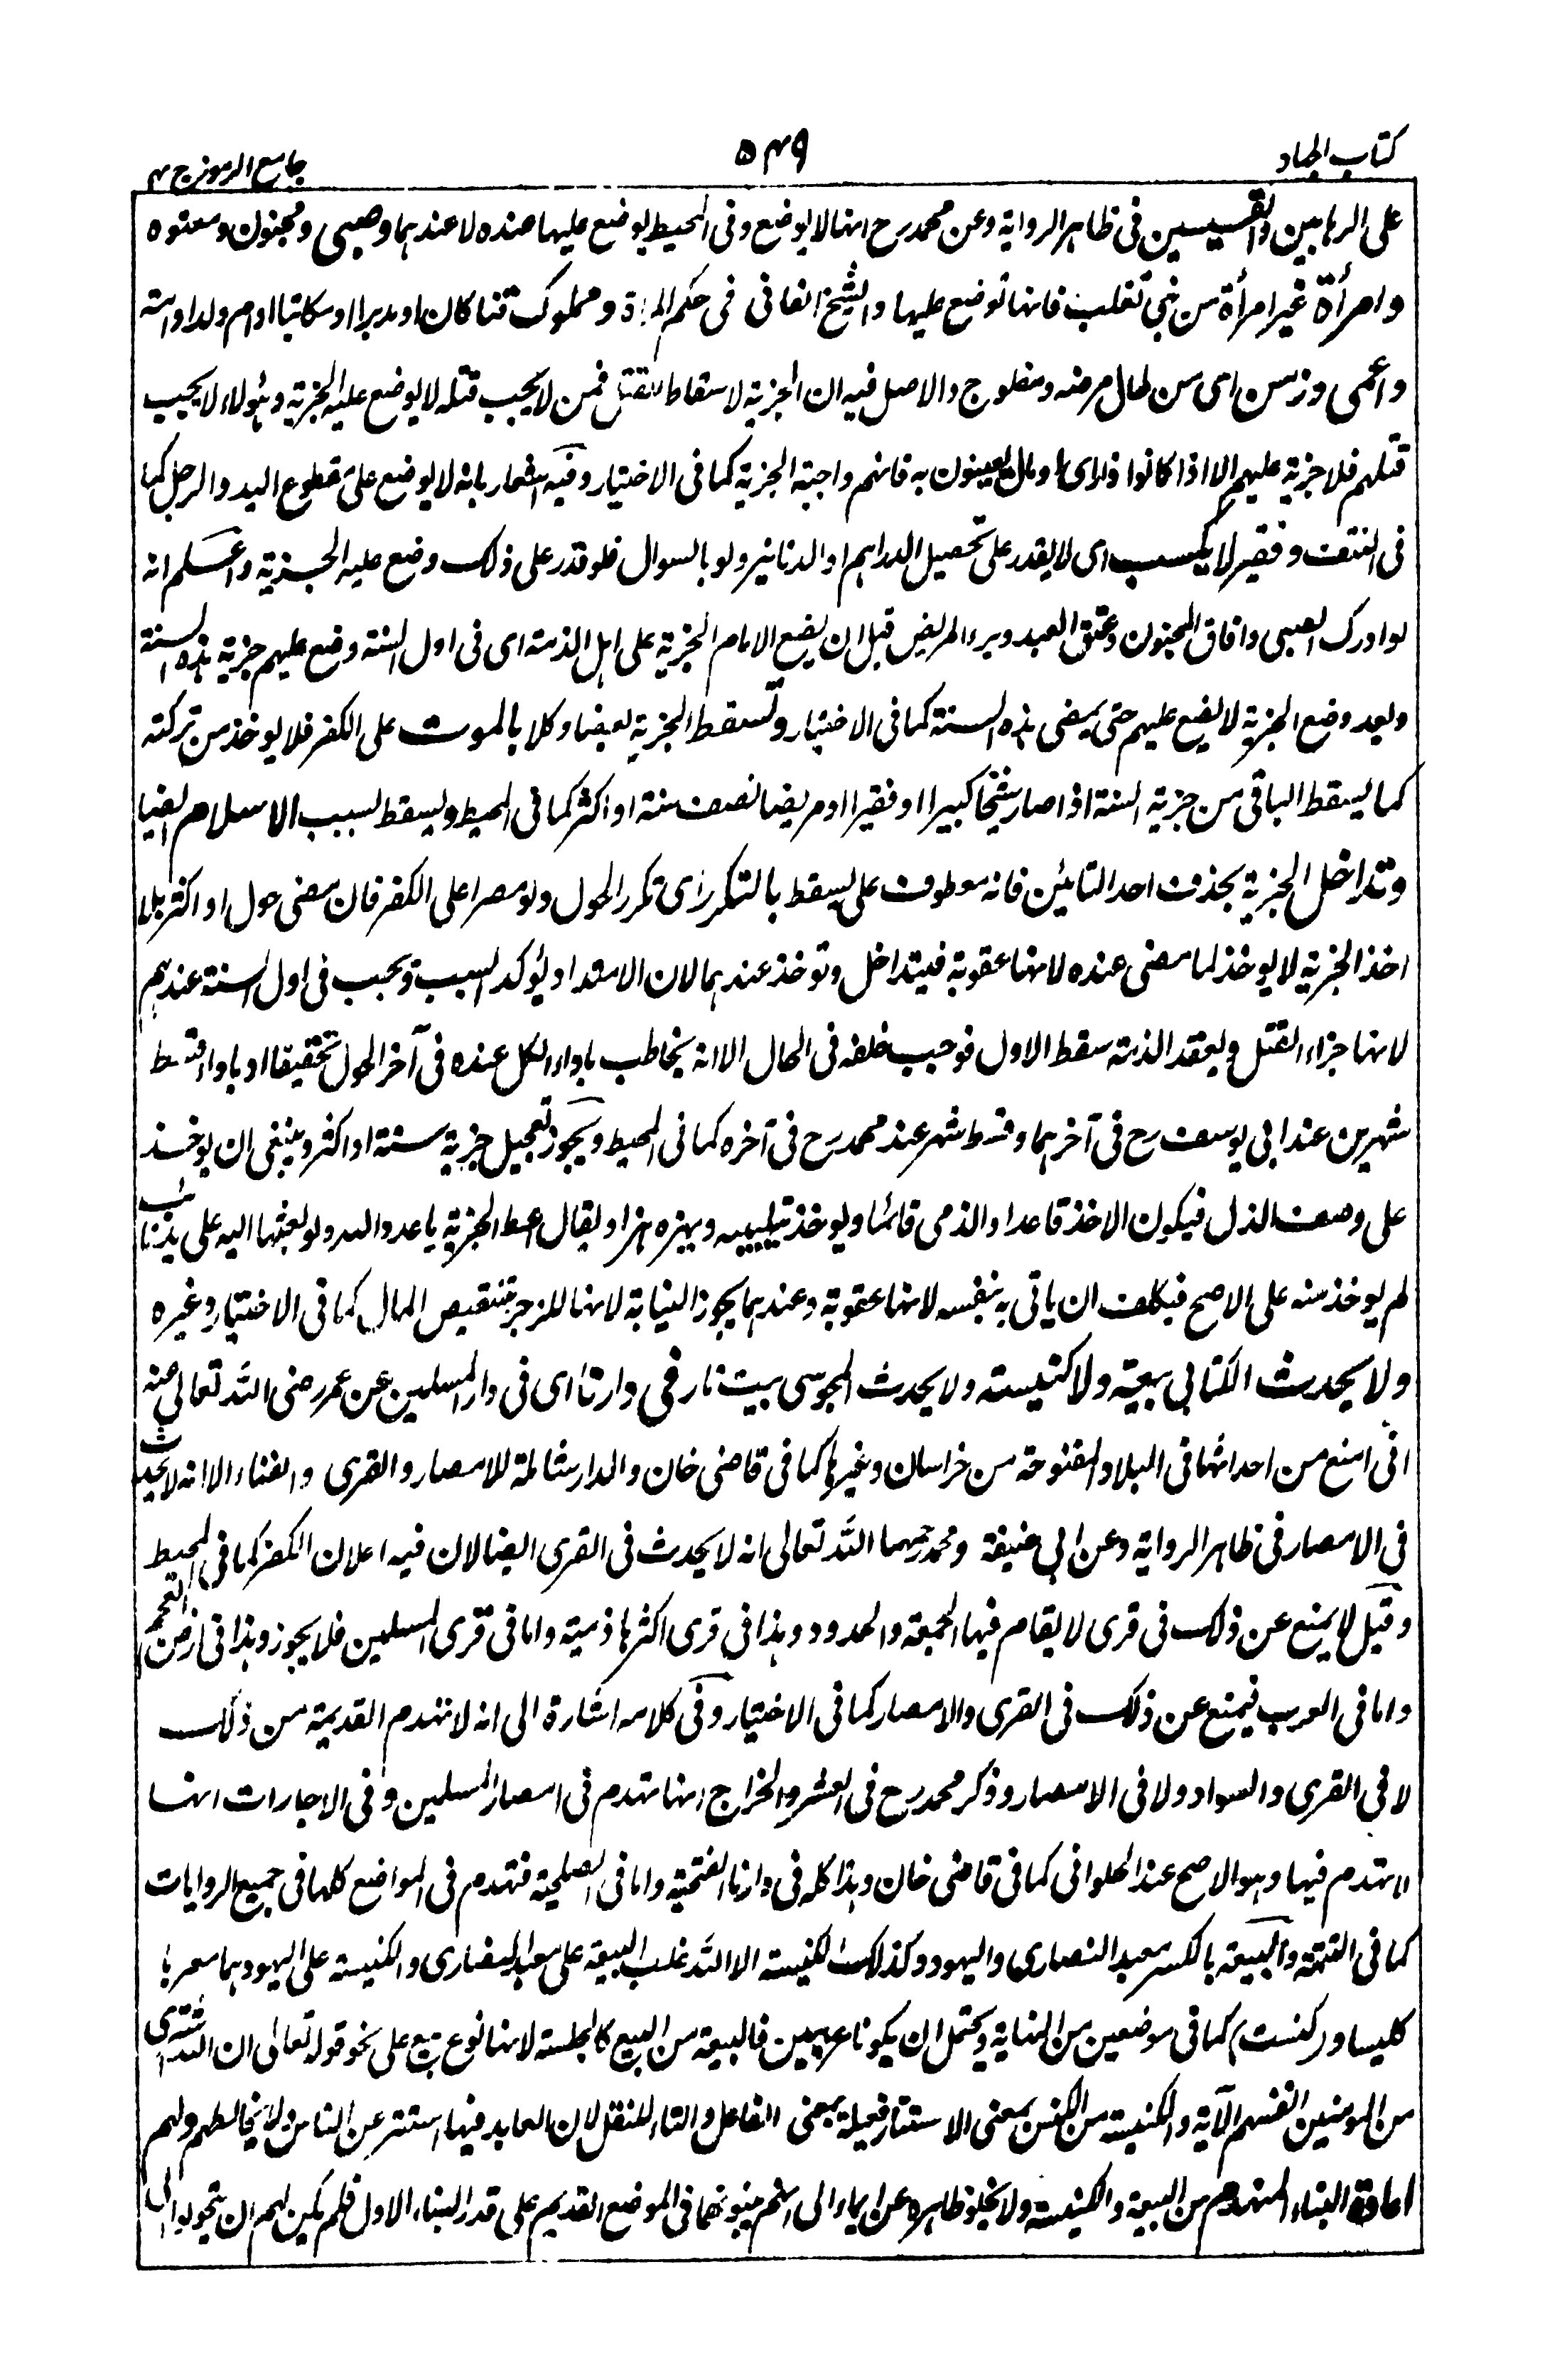 كتاب الجهاد
٥٤٩
جامع الرموز ج ٤
على الرهابين والقسيسين فى ظاهر الرواية وعن محمد رح انها لا يوضع وفى المحيط يوضع عليها عنده لا عندهما وصبى ومجنون ومعتوه
وامرأة غير امرأة من بنى تغلب فانها توضع عليها والشيخ الفانى فى حكم المرأة ومملوك قنا كان او مدبرا او مكاتبا او ام ولد او ابنه
واعمى وزمن اى من طال مرضه ومفلوج والاصل فيه ان الجزية لاسقاط القتل فمن لا يجب قتله لا يوضع عليه الجزية وهؤلاء لا يجب
قتلهم فلا جزية عليهم الا اذا كانوا ذا راى او مال يعينون به فانهم واجبة الجزية كما فى الاختيار وفيه اشعار بانه لا يوضع على مقطوع اليد والرجل كما
فى النتف وفقير لا يكسب اى لا يقدر على تحصيل الدراهم او الدنانير ولو بالسوال فلو قدر على ذلك وضع عليه الجزية واعلم انه
لو ادرك الصبى وافاق المجنون وعتق العبد وبرء المريض قبل ان يضع الامام الجزية على اهل الذمة اى فى اول السنة وضع عليهم جزية هذه السنة
وبعد وضع الجزية لا يضع عليهم حتى يمضى هذه السنة كما فى الاختيار وتسقط الجزية بعضا وكلا بالموت على الكفر فلا يوخذ من تركته
كما يسقط الباقى من جزية السنة اذا صار شيخا كبيرا او فقيرا او مريضا نصف سنة او اكثر كما فى المحيط ويسقط بسبب الاسلام ايضا
وتداخل الجزية بحذف احد التائين فانه معطوف على يسقط بالتكرر اى تكرر الحول ولو مصرا على الكفر فان مضى حول او اكثر بلا
اخذ الجزية لا يوخذ لما مضى عنده لانها عقوبة فيتداخل وتوخذ عندهما لان الامتداد يؤكد السبب ويجب فى اول السنة عندهم
لانها جزاء القتل وبعقد الذمة سقط الاول فوجب خلفه فى الحال الا انه يخاطب باداء الكل عنده فى آخر الحول تحقيقا او باداء قسط
شهرين عند ابى يوسف رح فى آخرهما وقسط شهر عند محمد رح فى آخره كما فى المحيط ويجوز تعجيل جزية سنة او اكثر وينبغى ان يوخذ
على وصف الذل فيكون الاخذ قاعدا والذمى قائما ويوخذ تلبيبه ويهزه هزا ويقال اعط الجزية يا عدو الله ولو بعثها اليه على يد نائب
لم يوخذ منه على الاصح فيكلف ان ياتى به بنفسه لانها عقوبة وعندهما يجوز النيابة لانها للزجر بتنقيص المال كما فى الاختيار وغيره
ولا يحدث الكتابى بيعة ولا كنيسة ولا يحدث المجوسى بيت نار فى دارنا اى فى دار المسلمين عن عمر رضى الله تعالى عنه
انى امنع من احداثها فى البلاد المفتوحة من خراسان وغيرها كما فى قاضى خان والدار شاملة للامصار والقرى والفناء الا انه لا يحدث
فى الامصار فى ظاهر الرواية وعن ابى حنيفة ومحمد رحمهما الله تعالى انه لا يحدث فى القرى ايضا لان فيه اعلان الكفر كما فى المحيط
وقيل لا يمنع عن ذلك فى قرى لا يقام فيها الجمعة والحدود وهذا فى قرى اكثرها ذمية واما فى قرى المسلمين فلا يجوز وهذا فى ارض العجم
واما فى العرب فيمنع عن ذلك فى القرى والامصار كما فى الاختيار وفى كلامه اشارة الى انه لا تنهدم القديمة من ذلك
لا فى القرى والسواد ولا فى الامصار وذكر محمد رح فى العشر والخراج انها تهدم فى امصار المسلمين وفى الاجارات انها
لا تهدم فيها وهو الاصح عند الحلوانى كما فى قاضى خان وهذا كله فى دارنا الفتحية واما فى الصلحية فتهدم فى المواضع كلها فى جميع الروايات
كما فى التتمة والبيعة بالكسر معبد النصارى واليهود وكذلك الكنيسة الا انه غلب البيعة على معبد النصارى والكنيسة على اليهود هما معربا
كليسا وركنست كما فى موضعين من النهاية ويحتمل ان يكونا عربيين فالبيعة من البيع كالجلسة لانها نوع بيع على نحو قوله تعالى ان الله اشترى
من المومنين انفسهم الآية والكنيسة من الكنس بمعنى الاستتار فعيلة بمعنى الفاعل والتاء للنقل لان العابد فيها استتر عن الناس ولا يخالطهم ولهم
اعادة البناء المنهدم من البيعة والكنيسة ولا يخلو ظاهره عن ايماء الى انهم يبنونهما فى الموضع القديم على قدر البناء الاول فلم يكن لهم ان يتحولوا الى